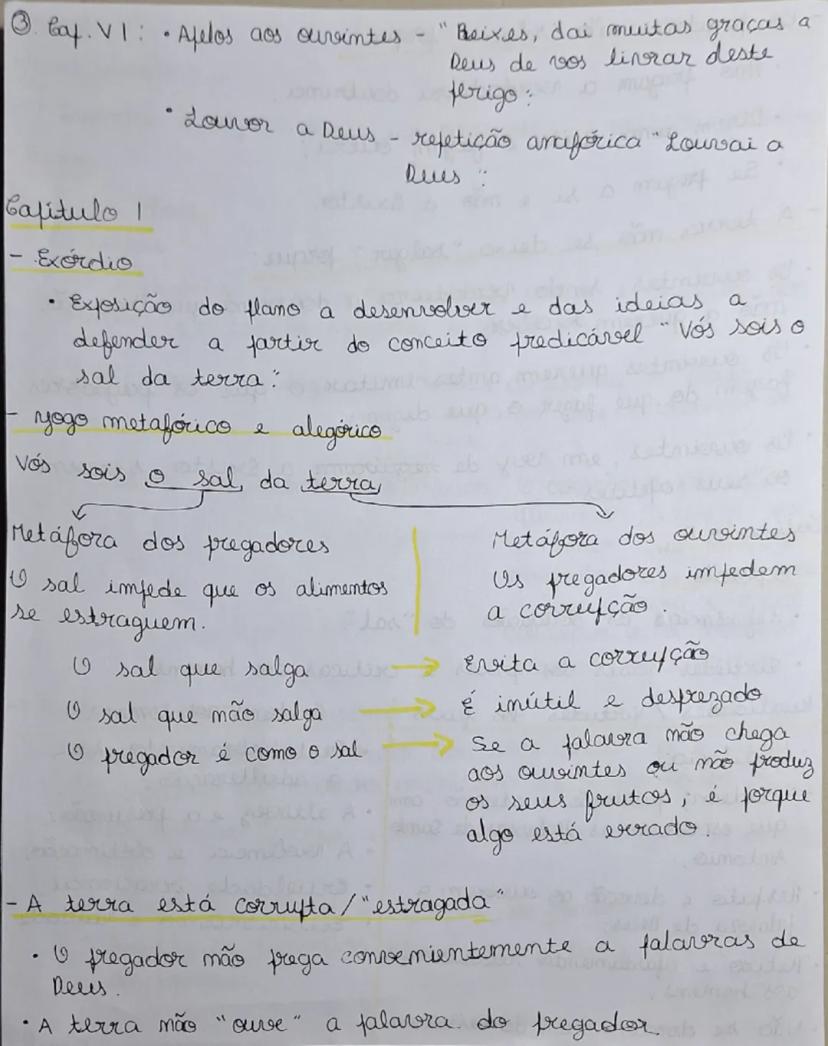 ③ Cap. VI: • Apelos aos ouvintes - "Peixes, dai muitas graças a
Deus de vos livrar deste
perigo".
• Louvor a Deus - repetição anafórica "Louvai a
Deus".
Capítulo 1
- Exórdio
• Exposição do plano a desenvolver e das ideias a
defender a partir do conceito predicável "Vós sois o
sal da terra".
- Yogo metafórico e alegórico
Vós sois o sal da terra
Metáfora dos pregadores
O sal impede que os alimentos
se estraguem.
Metáfora dos ouvintes
Os pregadores impedem
a corrupção.
O sal que salga → Evita a corrupção
O sal que não salga → É inútil e desprezado
O pregador é como o sal → Se a palavra não chega
aos ouvintes ou não produz
os seus frutos, é porque
algo está errado.
- A terra está corrupta/"estragada"
• O pregador não prega convenientemente a palavras de
Deus.
• A terra não "ouve" a palavra do pregador.